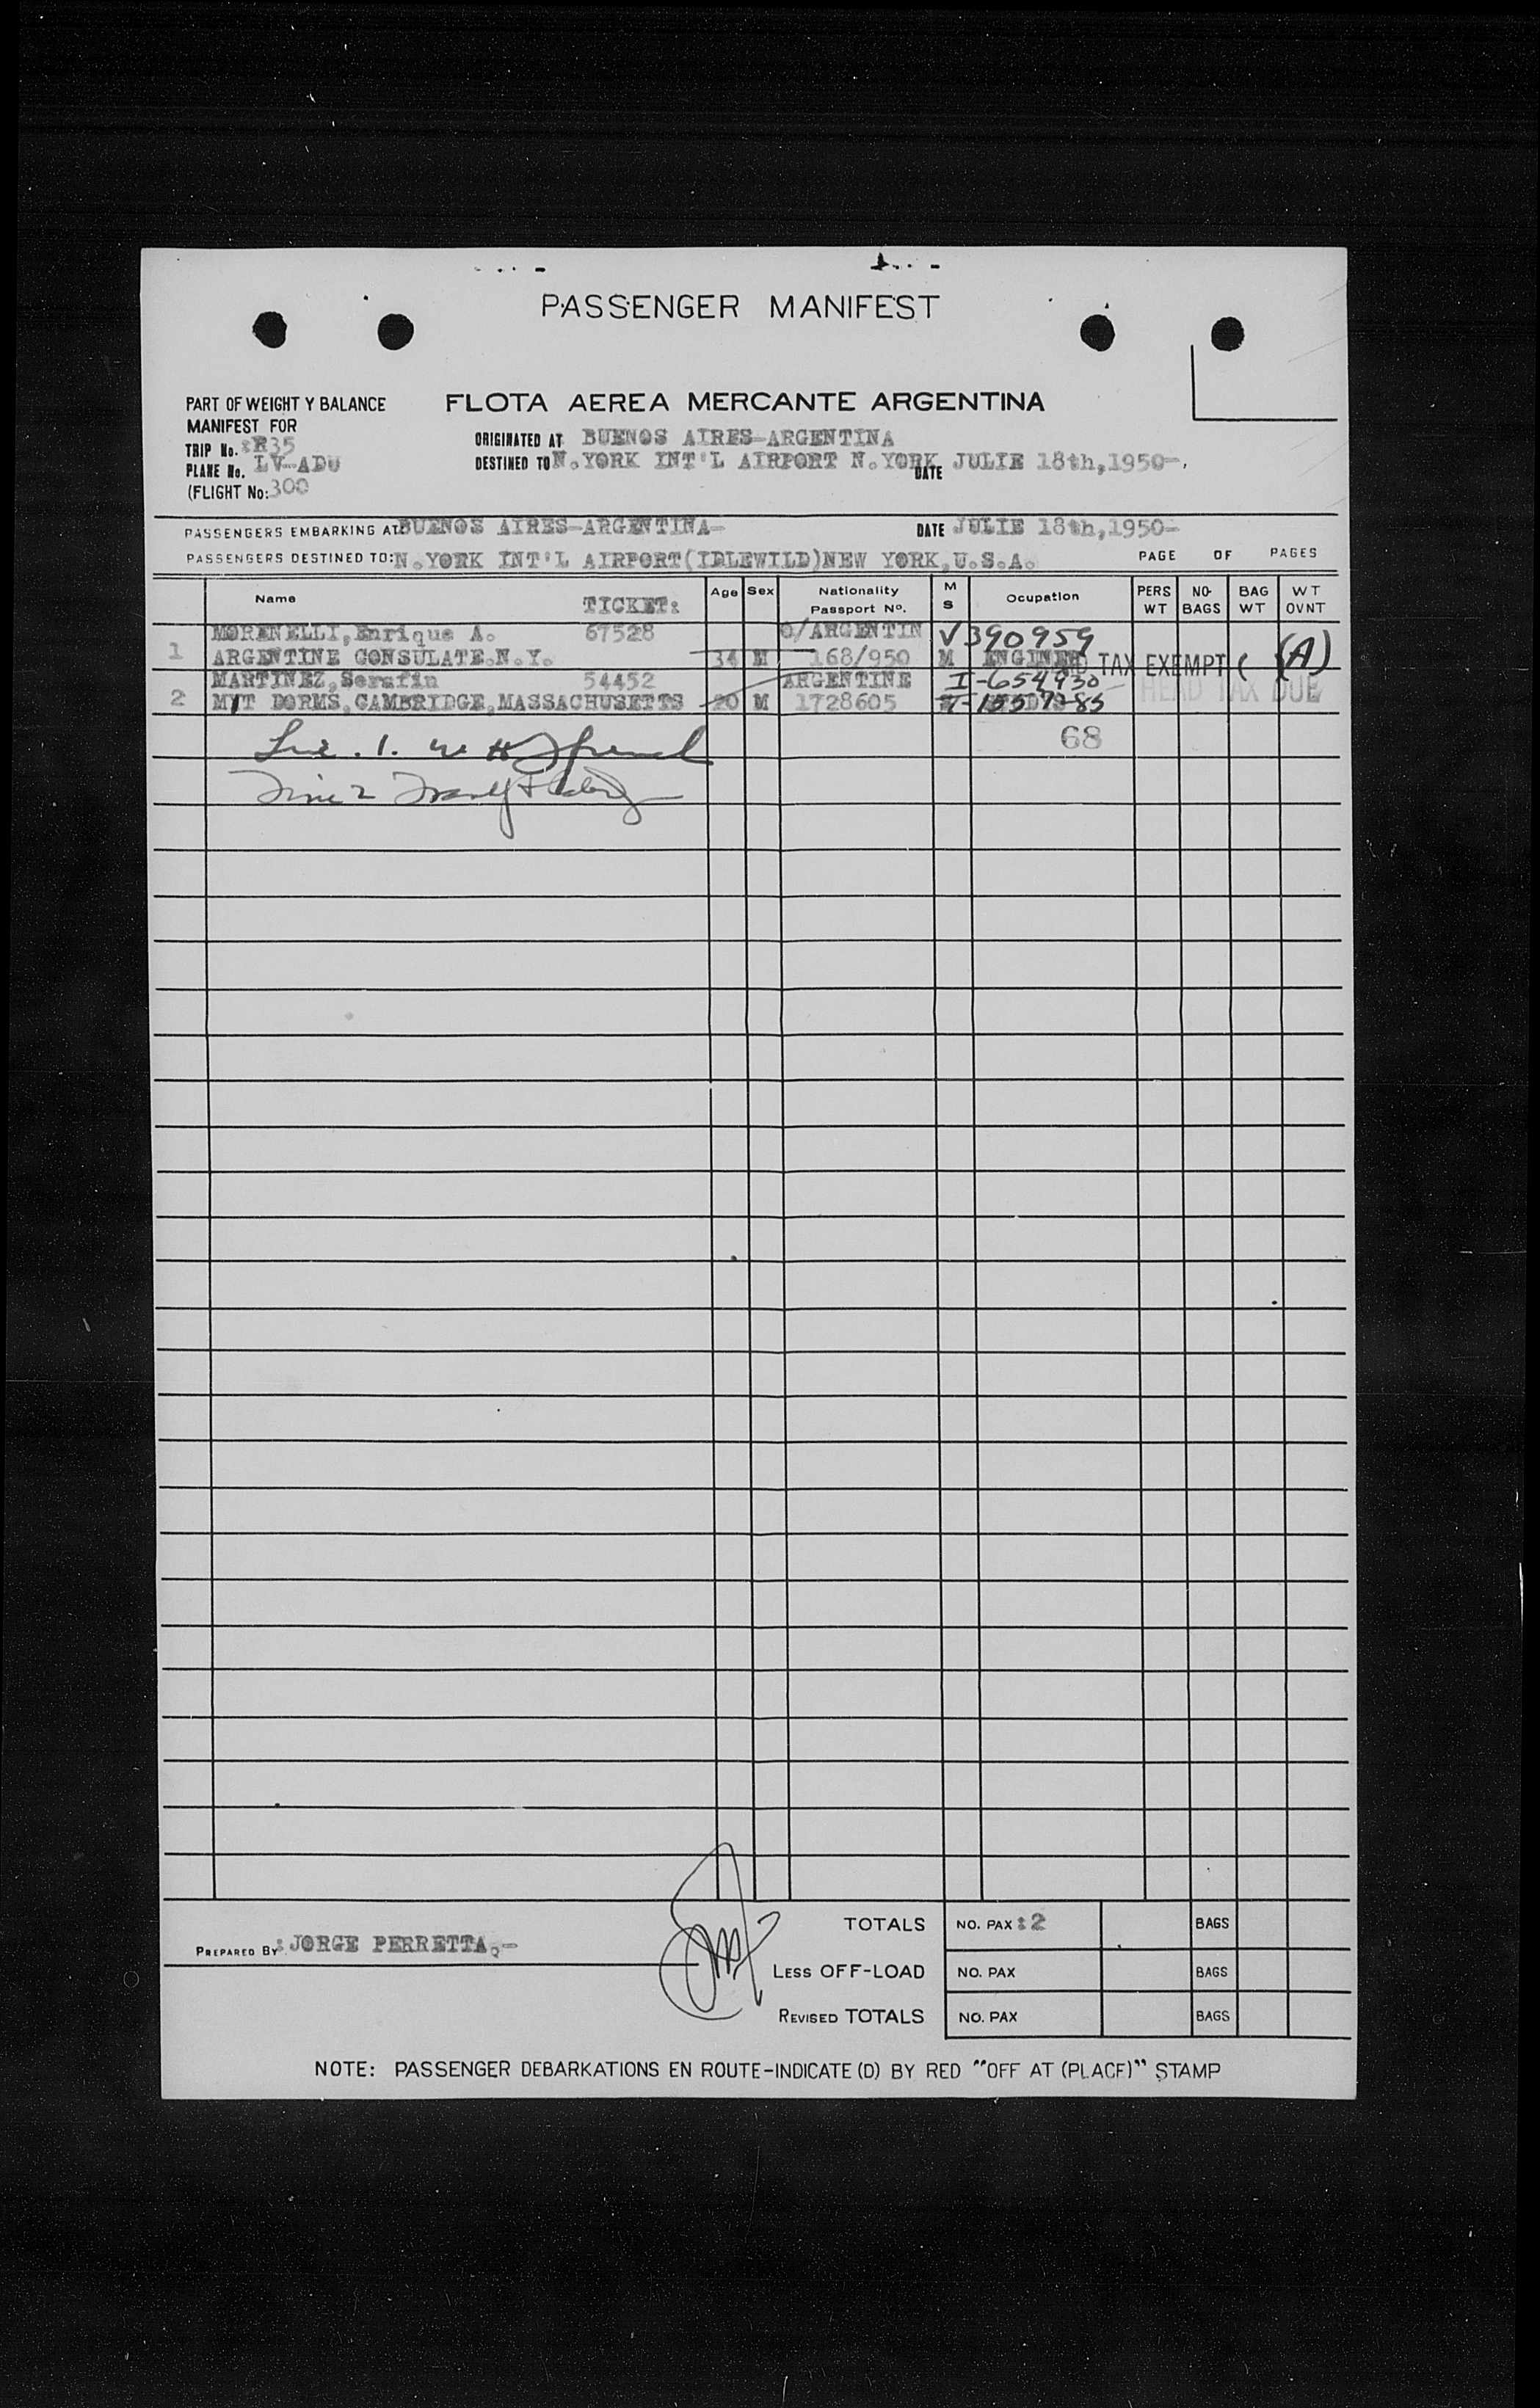 PASSENGER MANIFEST
PART OF WEIGHT Y BALANCE
MANIFEST FOR
TRIP No.:R35
PLANE No. LV-ADU
(FLIGHT No:300
FLOTA AEREA MERCANTE ARGENTINA
ORIGINATED AT BUENOS AIRES-ARGENTINA
DESTINED TO N.YORK INT'L AIRPORT N.YORK DATE JULIE 18th,1950-.
PASSENGERS EMBARKING AT:BUENOS AIRES-ARGENTINA- DATE JULIE 18th,1950-
PASSENGERS DESTINED TO:N.YORK INT'L AIRPORT(IDLEWILD)NEW YORK,U.S.A. PAGE OF PAGES
Name TICKET: Age Sex Nationality Passport No. M S Ocupation PERS WT NO- BAGS BAG WT WT OVNT
MORENELLI,Enrique A. 67528 O/ARGENTIN V390959
1 ARGENTINE CONSULATE.N.Y. 34 M 168/950 M ENGINER TAX EXEMPT ( (A)
MARTINEZ,Serafin 54452 ARGENTINE I-654930
2 MIT DORMS,CAMBRIDGE,MASSACHUSETTS 20 M 1728605 HEAD TAX DUE
68
PREPARED BY: JORGE PERRETTA.-
TOTALS NO. PAX:2 BAGS
LESS OFF-LOAD NO. PAX BAGS
REVISED TOTALS NO. PAX BAGS
NOTE: PASSENGER DEBARKATIONS EN ROUTE-INDICATE (D) BY RED "OFF AT (PLACE)" STAMP